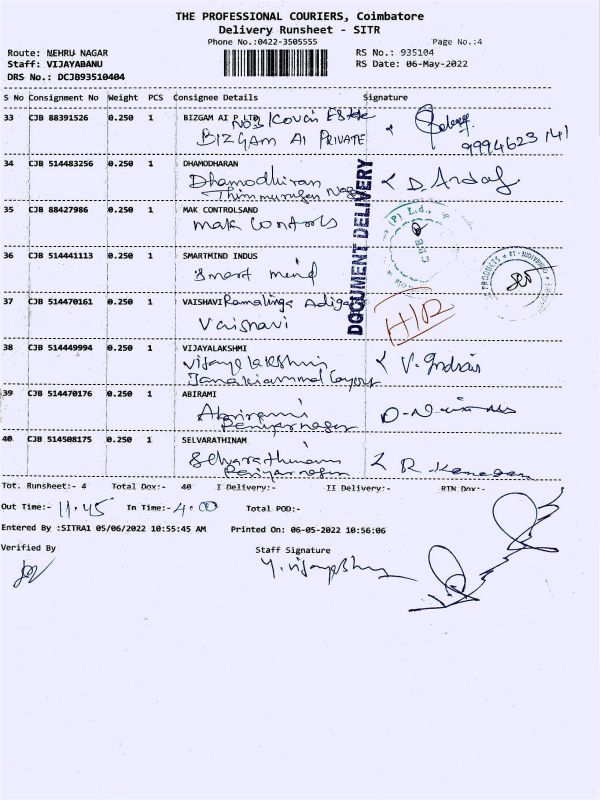 THE PROFESSIONAL COURIERS, Coimbatore
Delivery Runsheet - SITR
Phone No.:0422-3505555
Page No.:4
Route: NEHRU NAGAR
RS No.: 935104
Staff: VIJAYABANU
RS Date: 06-May-2022
DRS No.: DCJB93510404
S No Consignment No Weight PCS Consignee Details Signature
33 CJB 88391526 0.250 1 BIZGAM AI P LTD
No.3 Kovai Estate
BIZGAM AI PRIVATE
9994623141
34 CJB 514483256 0.250 1 DHAMODHARAN
Dhamodhiran
Nagar
35 CJB 88427986 0.250 1 MAK CONTROLSAND
mak controls
(P) Ltd.,
DOCUMENT DELIVERY
36 CJB 514441113 0.250 1 SMARTMIND INDUS
Smart mind
PRODUCTS
37 CJB 514470161 0.250 1 VAISHAVI Ramalinga Adigal
Vaishavi
H/R
38 CJB 514449994 0.250 1 VIJAYALAKSHMI
Vijayalakshmi
Janakiammal Layout
39 CJB 514470176 0.250 1 ABIRAMI
Abirami
Periyar nagar
40 CJB 514508175 0.250 1 SELVARATHINAM
Selvarathinam
Periyar nagar
Tot. Runsheet:- 4 Total Dox:- 40 I Delivery:- II Delivery:- RTN Dox:-
Out Time:- 11.45 In Time:- 4.00 Total POD:-
Entered By :SITRA1 05/06/2022 10:55:45 AM Printed On: 06-05-2022 10:56:06
Verified By
Staff Signature